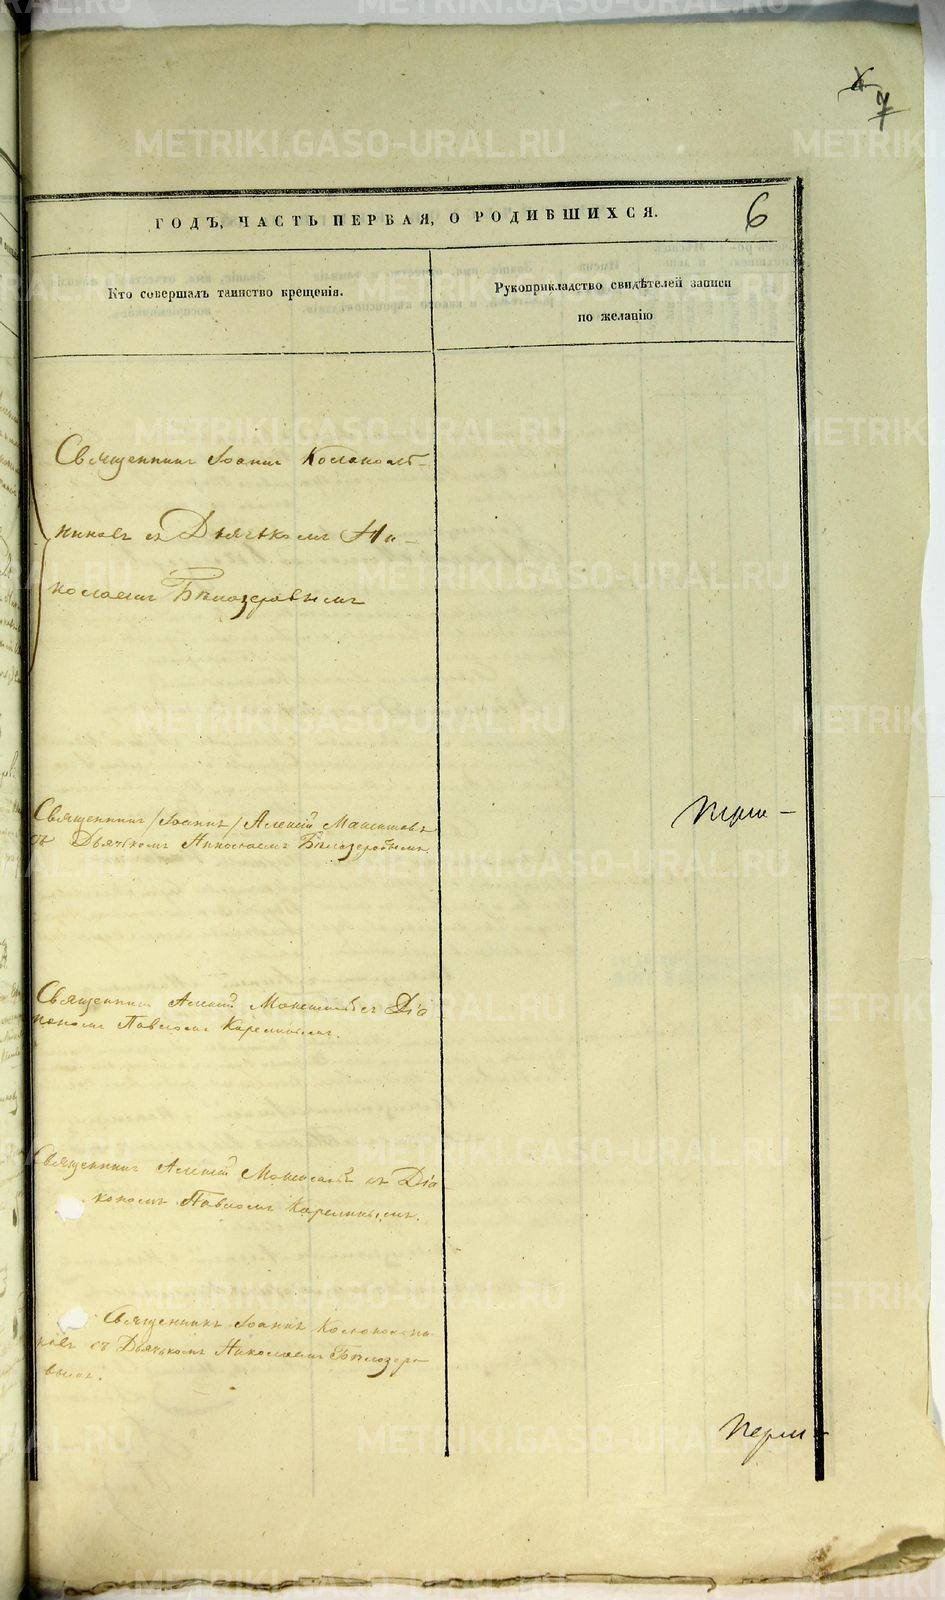 7
6
ГОДЪ, ЧАСТЬ ПЕРВАЯ, О РОДИВШИХСЯ.
Кто совершалъ таинство крещенія.
Рукоприкладство свидѣтелей записи
по желанію
Священникъ Іоаннъ Колокольт-
никовъ съ Дьячькомъ Ни-
колаемъ Бѣлозеровымъ
Священникъ /Іоаннъ/ Алексій
съ Дьячькомъ Николаемъ Бѣлозеровымъ.
Священникъ Алексій съ Діа
кономъ Павломъ Карелинымъ.
Священникъ Алексій съ Діа-
кономъ Павломъ Карелинымъ.
Священникъ Іоаннъ Колокольтни-
ковъ съ Дьячькомъ Николаемъ Бѣлозеро-
вымъ.
METRIKI.GASO-URAL.RU